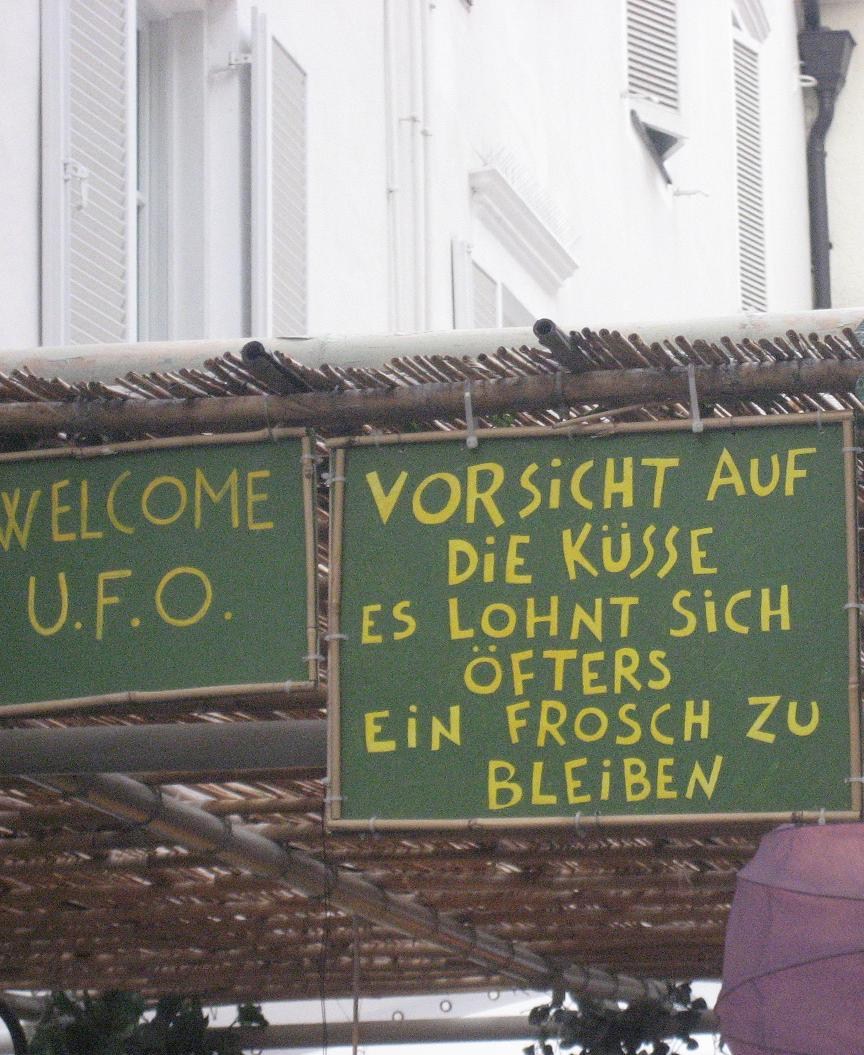 WELCOME
U.F.O.
VORSiCHT AUF
DiE KÜSSE
ES LOHNT SiCH
ÖFTERS
EiN FROSCH ZU
BLEiBEN